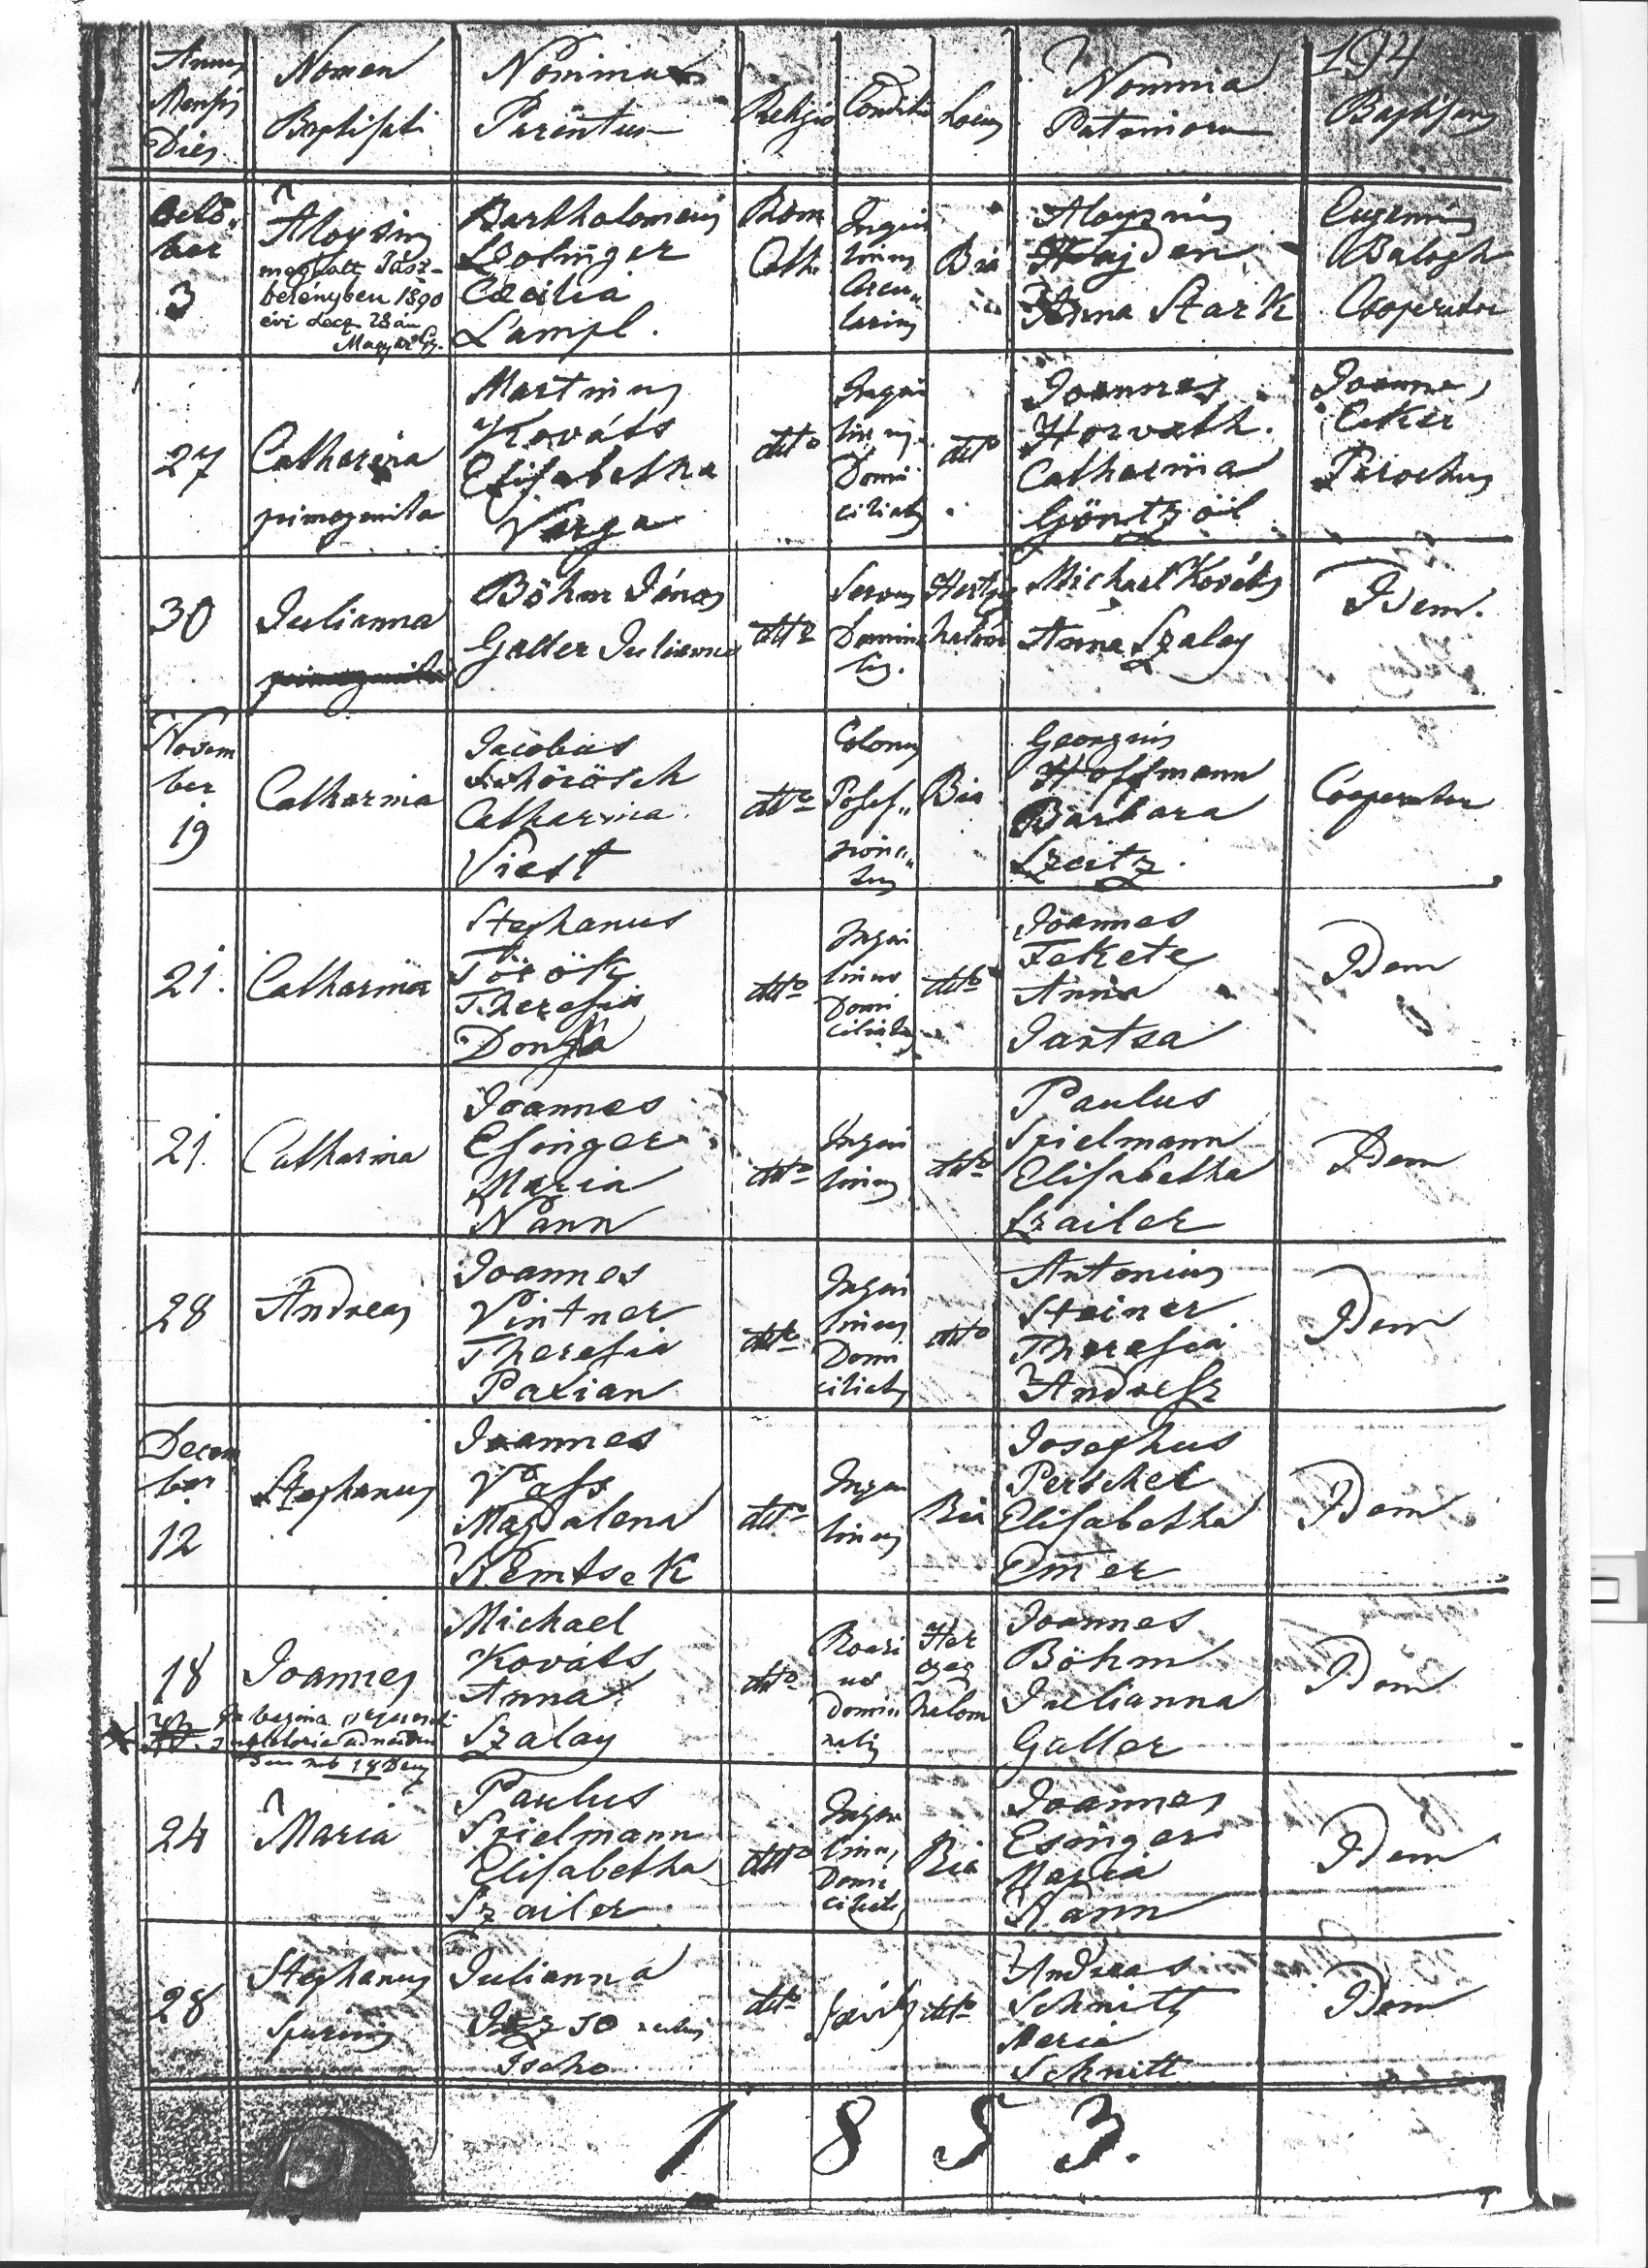 194
Annus
Mensis
Dies
Nomen
Baptisati
Nomina
Parentum
Religio
Conditio
Locus
Nomina
Patrinorum
Baptisans
Octo„
ber
3
Aloysius
meghalt Jász-
berényben 1890
évi decz. 28án
Bartholomeus
Lzolinger
Cæcilia
Lampl.
Rom
Cath.
Inqui
linus
Bia
Aloysius
Hajden
Anna Stark
Eugenius
Balogh
Cooperator
27
Catharina
primogenita
Martinus
Kováts
Elisabetha
Varga
dtto
Inqui
linus
Domi
ciliatus
dtto
Joannes
Horvath.
Catharina
Göntzöl
Joannes
Ecker
Parochus
30
Julianna
primogenita
Böhm János
Galler Julianna
dtto
Servus
Domina
lis.
Michael Kováts
Anna Szalay
Idem.
Novem
ber
19
Catharina
Jacobus
Schörösch
Catharina
Viest
dtto
Colonus
Posses„
siona„
tus
Bia
Georgius
Hoffmann
Barbara
Szeitz.
Cooperator
21.
Catharina
Stephanus
Török
Theresia
Donga
dtto
Inqui
linus
Domi
ciliatus
dtto
Joannes
Fekete
Anna
Jantsa
Idem
21.
Catharina
Joannes
Esinger
Maria
Nann
dtto
Inqui
linus
dtto
Paulus
Spielmann
Elisabetha
Szailer
Idem
28
Andreas
Joannes
Vintner
Theresia
Paxian
dtto
Inqui
linus
Domi
ciliatus
dtto
Antonius
Steiner
Theresia
Andresz
Idem
Decem
ber
12
Stephanus
Joannes
Vass
Magdalena
Nemtsek
dtto
Inqui
linus
Bia
Josephus
Perschel
Elisabetha
Omer
Idem
18
Joannes
Michael
Kováts
Anna
Szalay
dtto
Domi
nalis
Her
czeg
halom
Joannes
Böhm
Julianna
Galler
Idem
24
Maria
Paulus
Spielmann
Elisabetha
Szailer
dtto
Inqui
linus
Domi
ciliatus
Bia
Joannes
Esinger
Maria
Nann
Idem
28
Stephanus
Spurius
Julianna
dtto
dtto
Andreas
Schmitt
Maria
Schnitt
Idem
1853.